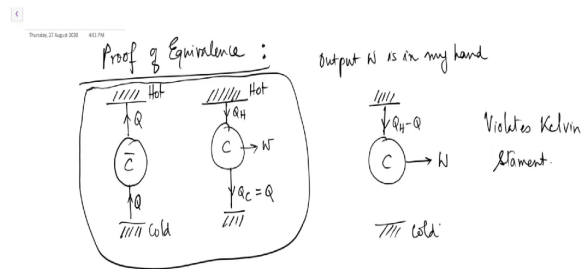 Thursday, 27 August 2020 4:51 PM
Proof of Equivalence :
Output W is in my hand
Hot
Q
C̅
Q
Cold
Hot
Q_H
C
W
Q_C = Q
Q_H-Q
C
W
Cold
Violates Kelvin
Stament.